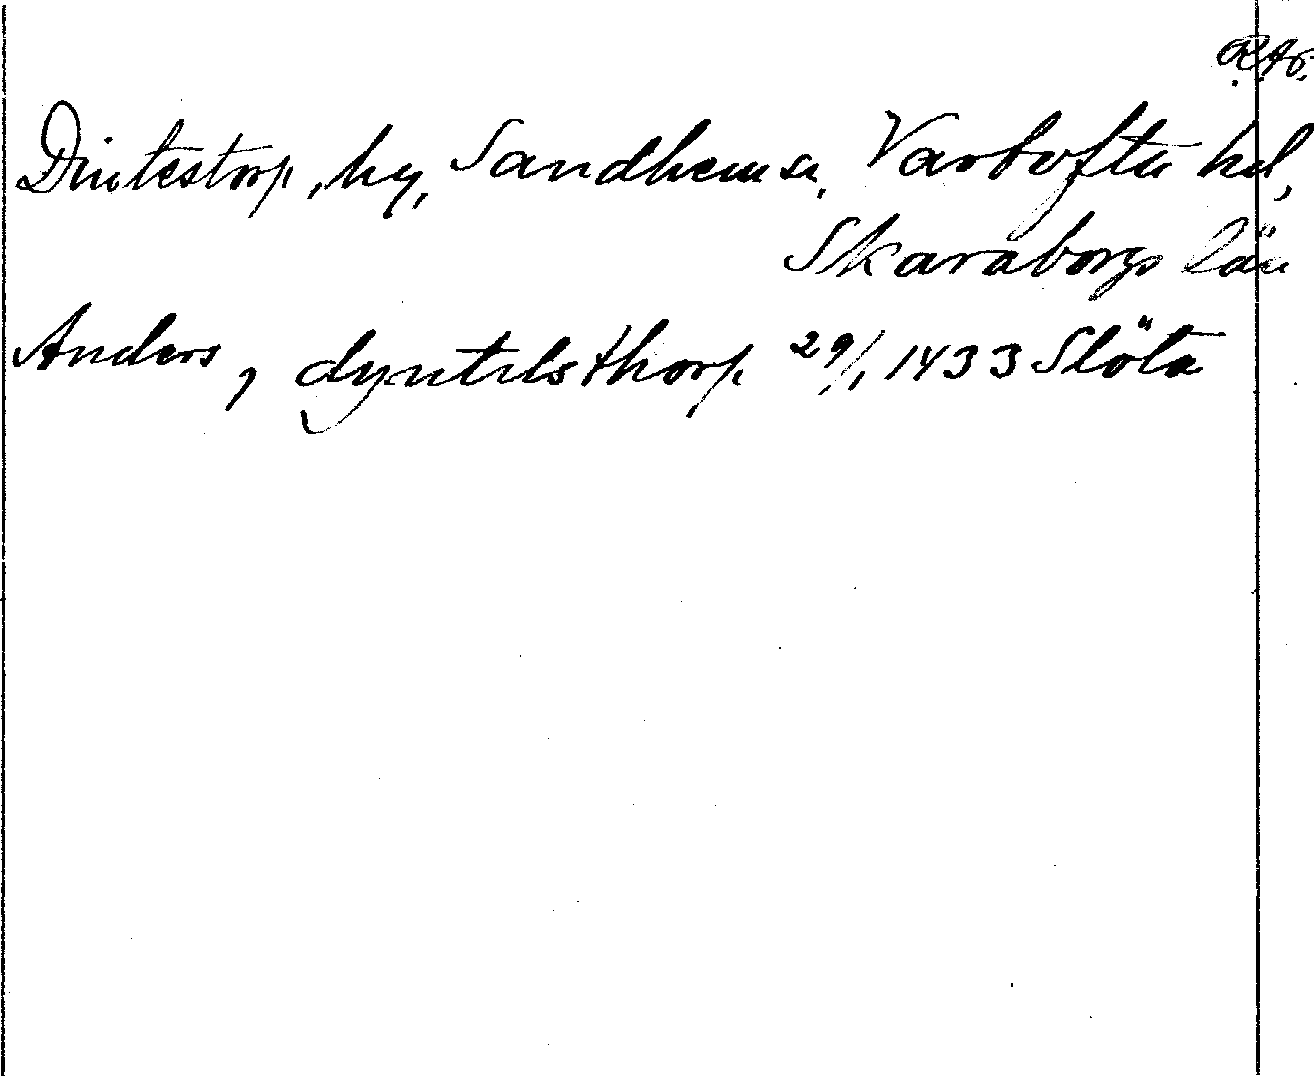 RAp.
Dintestorp, by, Sandhem sn, Vartofta hd,
Skaraborgs län
Anders, dyntilsthorp 29/1 1433 Slöta